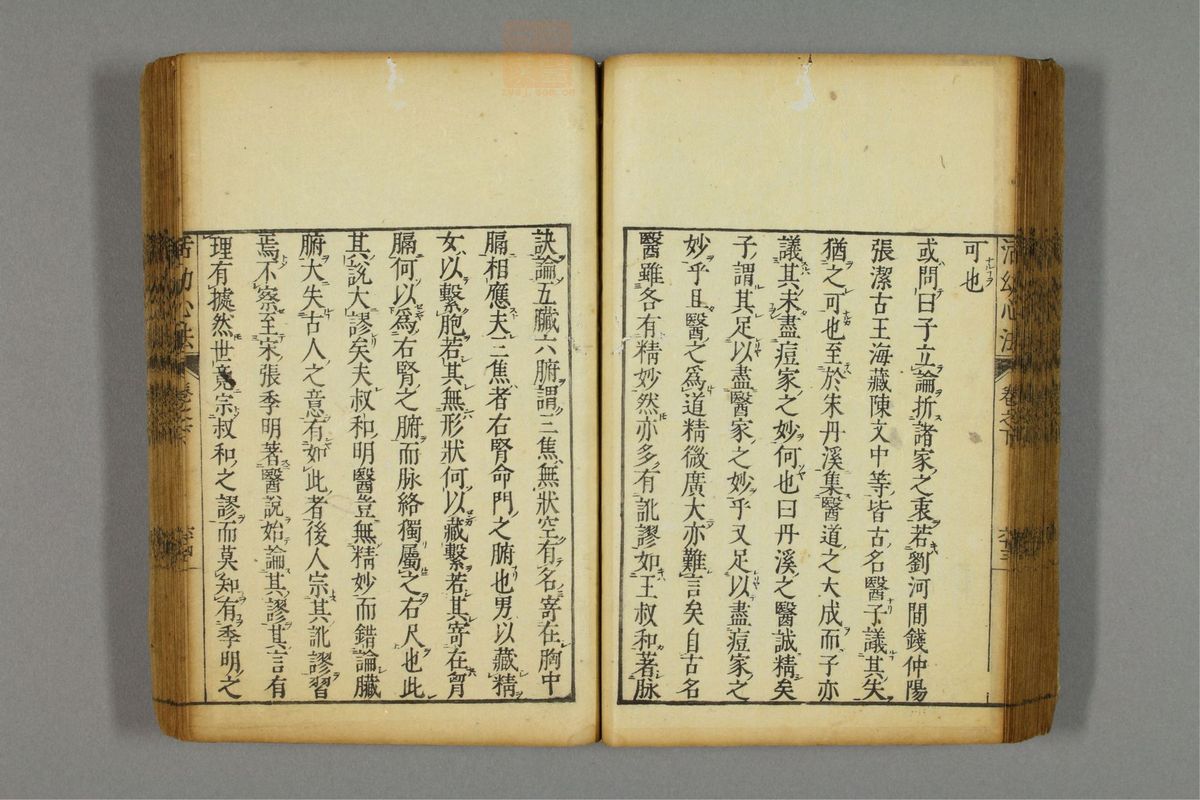 活幼心法
卷之下
可也
或問曰子立論折諸家之衷若劉河間錢仲陽
張潔古王海藏陳文中等皆古名醫子議其失
猶之可也至於朱丹溪集醫道之大成而子亦
議其未盡痘家之妙何也曰丹溪之醫誠精矣
子謂其足以盡醫家之妙乎又足以盡痘家之
妙乎且醫之爲道精微廣大亦難言矣自古名
醫雖各有精妙然亦多有訛謬如王叔和著脉
訣論五臟六腑謂三焦無狀空有名寄在胸中
膈相應夫三焦者右腎命門之腑也男以藏精
女以繫胞若其無形狀何以藏繫若其寄在胷
膈何以爲右腎之腑而脉絡獨屬之右尺也此
其說大謬矣夫叔和明醫豈無精妙而錯論臟
腑大失古人之意有如此者後人宗其訛謬習
焉不察至宋張季明著醫說始論其謬其言有
理有據然世竟宗叔和之謬而莫知有季明之
活幼心法
卷之下